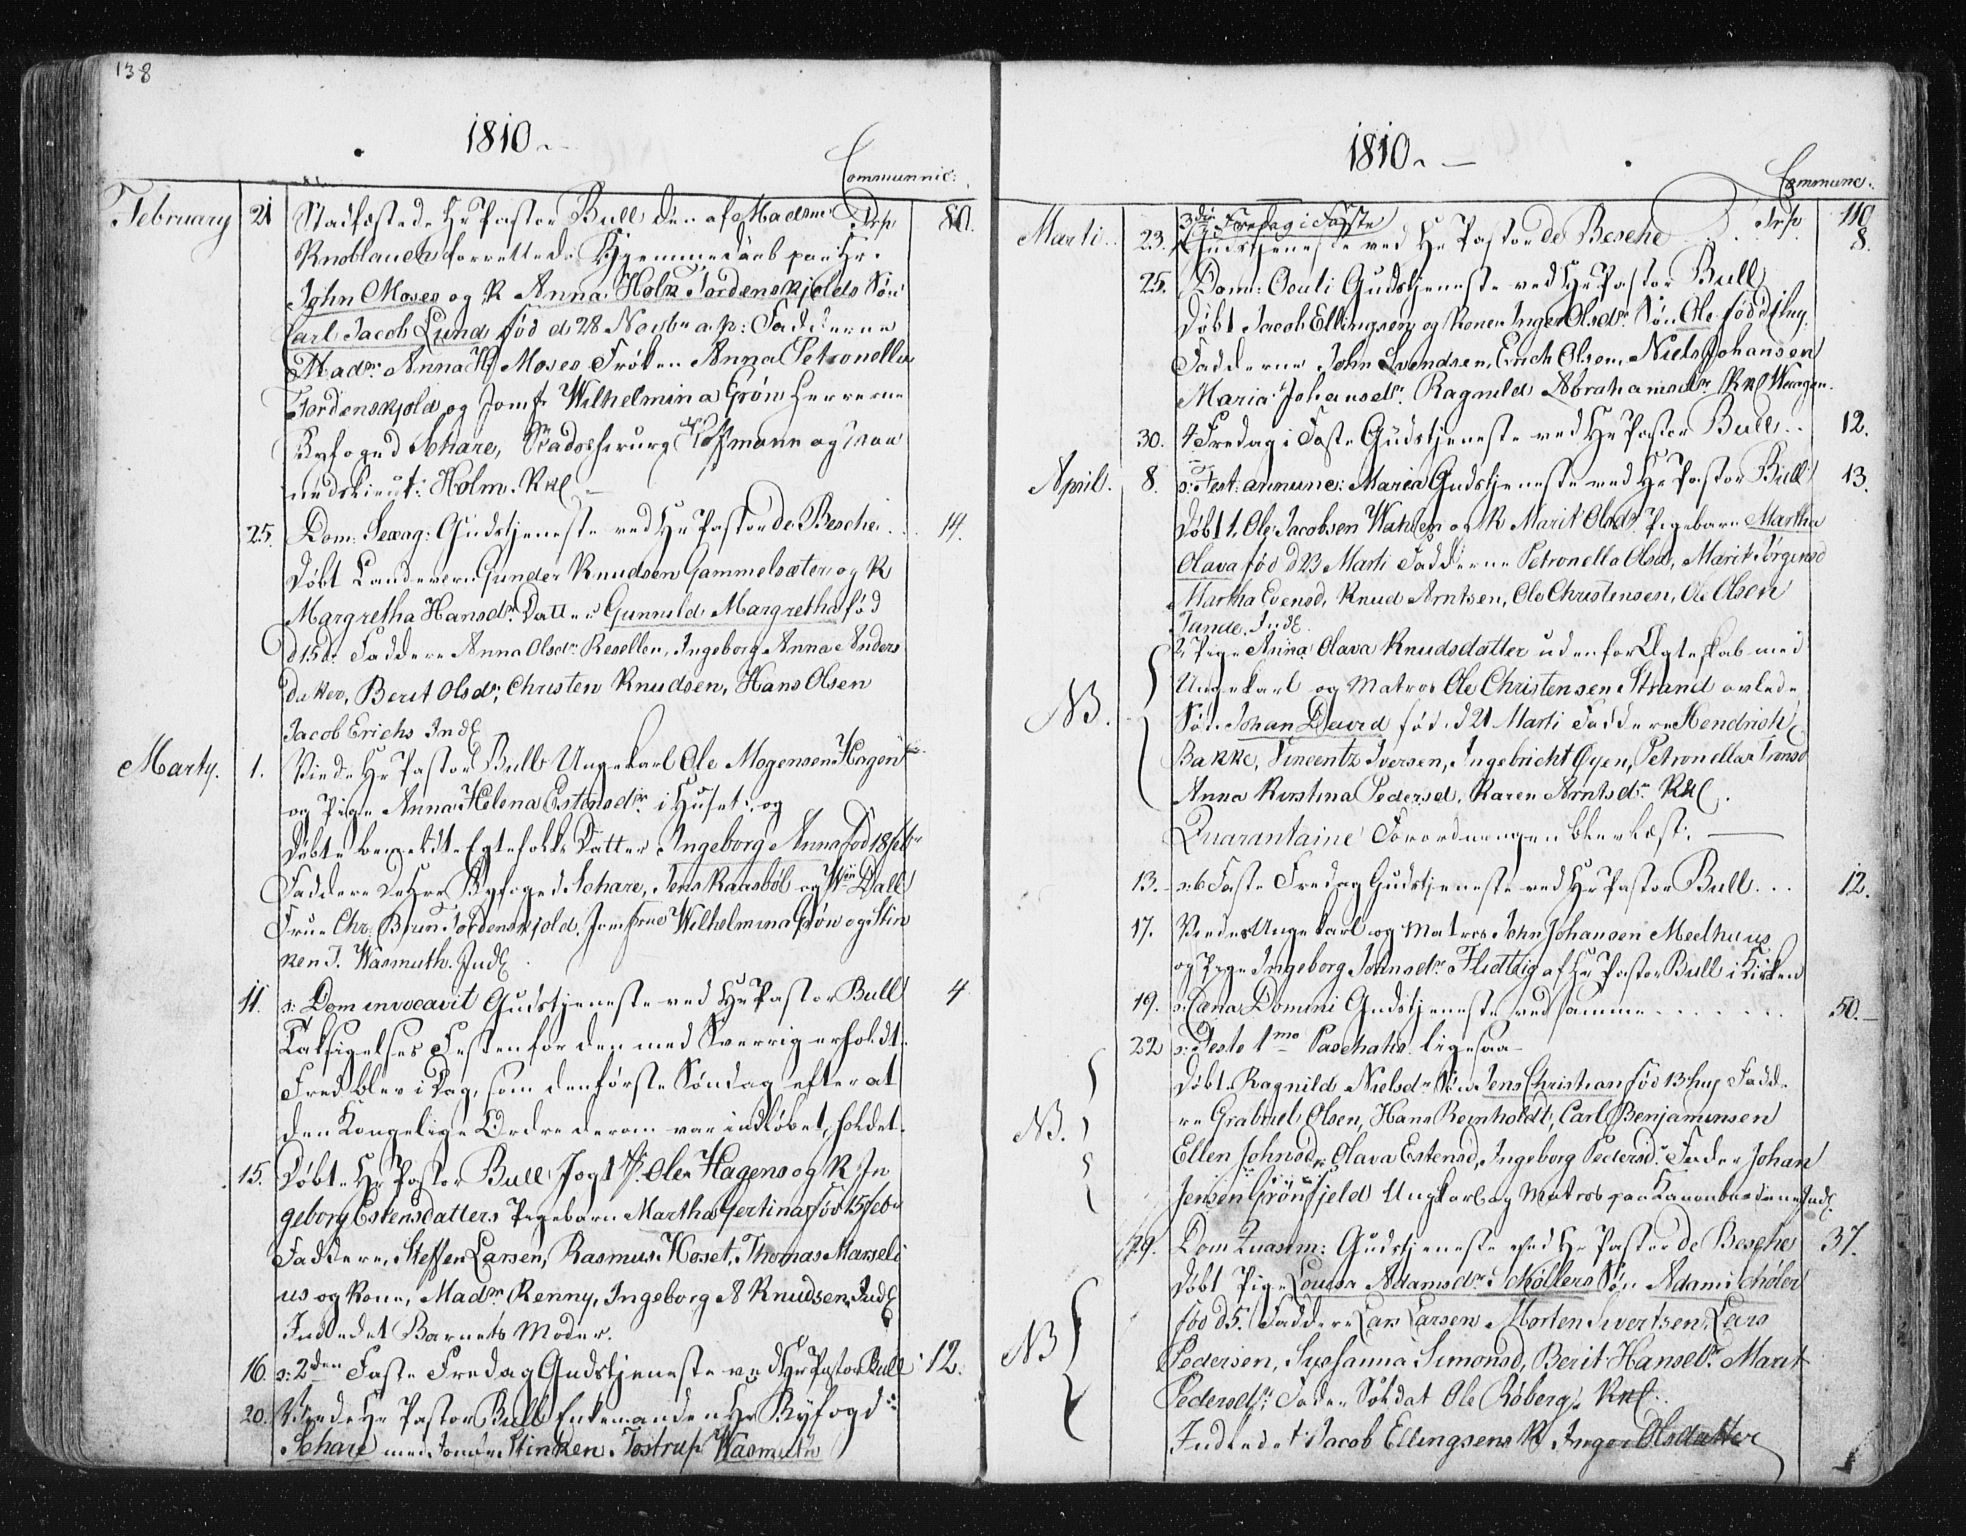 138
1810.
Communic:
February 21 Stadfæstede Hr Pastor Bull den af Madme Trsp 80.
Knoblauch forrettede Hjemmedaab paa Hr.
John Moses og K Anna Holm Tordenskjolds Søn
Carl Jacob Lund fød d 28 Novbr a.p: Fadderne
Madr. Anna H Moses Frøken Anna Petronella
Tordenskjold og Jomfr Wilhelmina Grøn Herrerne
Byfoged Schare, Stadschirurg Hoffmann og
Holm. Kkl
25. Dom: Sexag: Gudstjeneste ved Hr Pastor de Besche .. 14.
Døbt Landeværn Gunder Knudsen Gammelsæter og K
Margretha Hansdr. Datter Gunnild Margretha fød
d 15 d. Faddere Anna Olsdr Resellen, Ingeborg Anna Anders
datter, Berit Olsdr, Christen Knudsen, Hans Olsen
Jacob Erichs Indl
Marty. 1. Viede Hr Pastor Bull Ungekarl Ole Mogensen Hagen
og Pige Anna Helena Estensdtr. i Huset, og
døbte bemeldte Egtefolks Datter Ingeborg Anna fød 18 febr
Faddere De Hrr Byfoged Schare, Jens Raasböl og Wm Dall
Frue Chr. Brun Tordenskjold, Jomfrue Wilhelmina Grøn og Stin
ken T. Wasmuth. Indl
11. s: Dom invocavit Gudstjeneste ved Hr Pastor Bull 4
Taksigelses Festen for den med Sverrig erholdt
Fred blev i Dag, som den første Søndag efter at
den Kongelige Ordre derom var indløbet, holdet.
15. Døbte Hr Pastor Bull Ole Hagens og K In
geborg Estensdatters Pigebarn Martha Gertina fød 15 febr
Faddere, Steffen Larsen, Rasmus Hosset, Thomas Marseli
us og Kone, Madr. Renny, Ingeborg A Knudsen, Indl
Indledet Barnets Moder.
16. s: 2den Faste Fredag Gudstjeneste ved Hr Pastor Bull 12.
20. Viede Hr Pastor Bull Enkemanden Hr Byfogd
Schare med Jomfr Stinken Tostrup Wasmuth
1810.
Commune.
Marti. 23. 3die Fredag i Faste Trsp 110
Gudstjeneste ved Hr Pastor de Besche 8.
25. Dom: Oculi Gudstjeneste ved Hr Pastor Bull
Døbt Jacob Ellingsen og Kone Inger Olsdr. Søn Ole fød d
Fadderne John Svendsen, Erich Olsen, Niels Johansen
Maria Johansdr. Ragnild Abrahamsdtr. Kkl
30. 4 Fredag i Faste Gudstjeneste ved Hr Pastor Bull .. 12.
April. 8. s: Fest: annunc: Maria Gudstjeneste ved Hr Pastor Bull 13.
Døbt 1. Ole Jacobsen Wahlen og K Marit Olsdr. Pigebarn Martha
Olava fød d 23 Marti Fadderne Petronella Olsd, Marit Jørgensd
Martha Evensd, Knud Arntsen, Ole Christensen, Ole Olsen
Tande. Indl.
NB. 2 Pige Anna Olava Knudsdatter udenfor Ægteskab med
Ungekarl og Matros Ole Christensen Strand avlede
Søn Johan David fød d 21 Marti Faddere Hendrich
Bakke, Vincentz Iversen, Ingebricht Øyen, Petronella
Anna Kirstina Pedersd, Karen Arntsdr. Kkl.
Quarantaine Forordningen blev læst.
13. s: 6 Faste Fredag Gudstjeneste ved Hr Pastor Bull ... 12.
17. Viedes Ungekarl og Matros John Johansen Meelhuus
og Pige Ingeborg Johnsdr. Flidtlig af Hr Pastor Bull i Kirken
19. s: Cæna Domini Gudstjeneste ved samme ....... 50.
22 s: Festo 1mo Paschatis ligesaa
NB. Døbt Ragnild Nielsdr Søn Jens Christian fød 13 huj Fadd.
re Grabriel Olsen, Hans Reinholdt, Carl Benjaminsen
Ellen Johnsd, Olava Estensd, Ingeborg Pedersd. Fader Johan
Jensen Grönfjeld Ungkarl og Matros paa Kanonbaadene Indl.
29. Dom Quasim: Gudstjeneste ved Hr Pastor de Besche 37.
NB Døbt Pige Lousa Adamsdr. Möllers Søn Adam Møler
fød d 5. Faddere Lars Larsen Morten Sivertsen, Lars
Pedersen, Sussanna Simonsd, Berit Hansdr. Marit
Pedersdtr. Fader Soldat Ole Röberg. Kkl.
Indledet Jacob Ellingsens K Inger Olsdatter